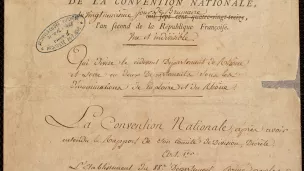 DE LA CONVENTION NATIONALE,
Vingtunieme jour de Brumaire
l'an second de la République Française,
Une et indivisible
Qui Divise le cidevant Departement de Rhône
et Loire en Deux De nouveaux sous les
Dénominations de la Loire et du Rhône
La Convention Nationale, après avoir
entendu le Rapport De son Comité de Division, Décrète
L'Etablissement du 88e Département